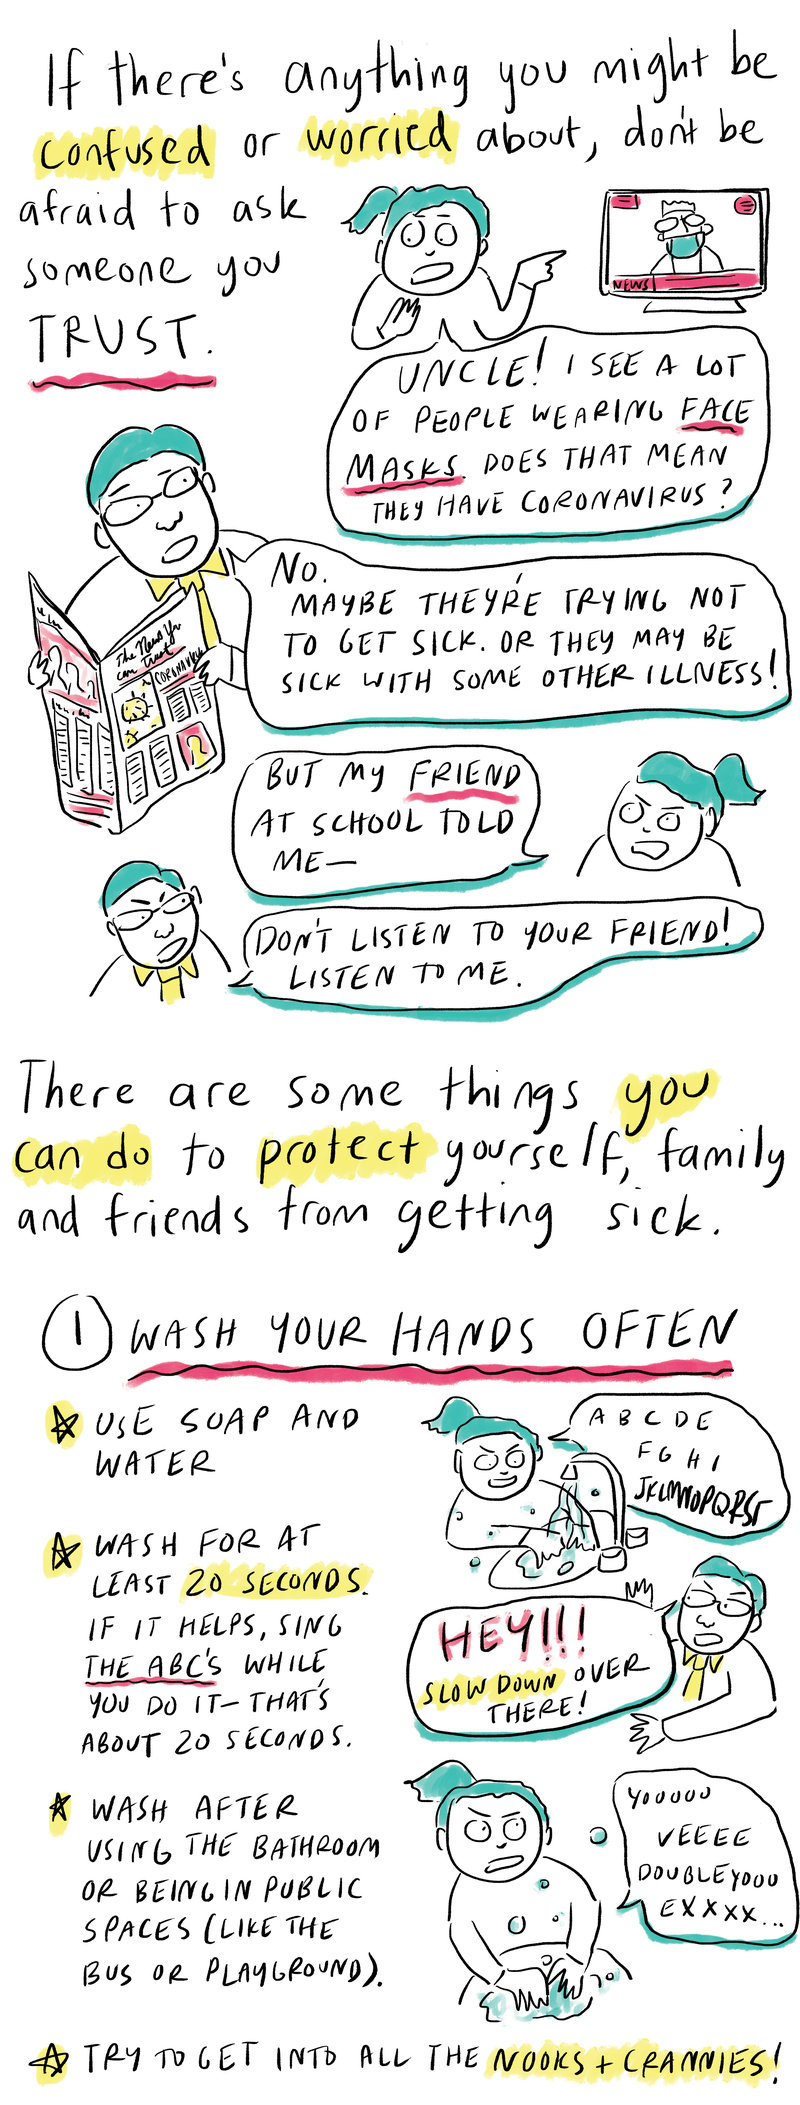 If there's anything you might be
confused or worried about, don't be
afraid to ask
someone you
TRUST.
NEWS
UNCLE! I SEE A LOT
OF PEOPLE WEARING FACE
MASKS. DOES THAT MEAN
THEY HAVE CORONAVIRUS?
The News You
can Trust
CORONAVIRUS
NO.
MAYBE THEY'RE TRYING NOT
TO GET SICK. OR THEY MAY BE
SICK WITH SOME OTHER ILLNESS!
BUT MY FRIEND
AT SCHOOL TOLD
ME—
DON'T LISTEN TO YOUR FRIEND!
LISTEN TO ME.
There are some things you
can do to protect yourself, family
and friends from getting sick.
1 WASH YOUR HANDS OFTEN
USE SOAP AND
WATER
A B C D E
F G H I
JKLMNOPQRST
WASH FOR AT
LEAST 20 SECONDS.
IF IT HELPS, SING
THE ABC'S WHILE
YOU DO IT—THAT'S
ABOUT 20 SECONDS.
HEY!!!
SLOW DOWN OVER
THERE!
WASH AFTER
USING THE BATHROOM
OR BEING IN PUBLIC
SPACES (LIKE THE
BUS OR PLAYGROUND).
YOOOOU
VEEEE
DOUBLEYOOU
EXXXX...
TRY TO GET INTO ALL THE NOOKS + CRANNIES!